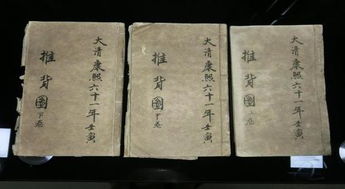 大清康熙六十一年壬寅
推背圖
下卷
大清康熙六十一年壬寅
推背圖
卷
大清康熙六十一年壬寅
推背圖
卷